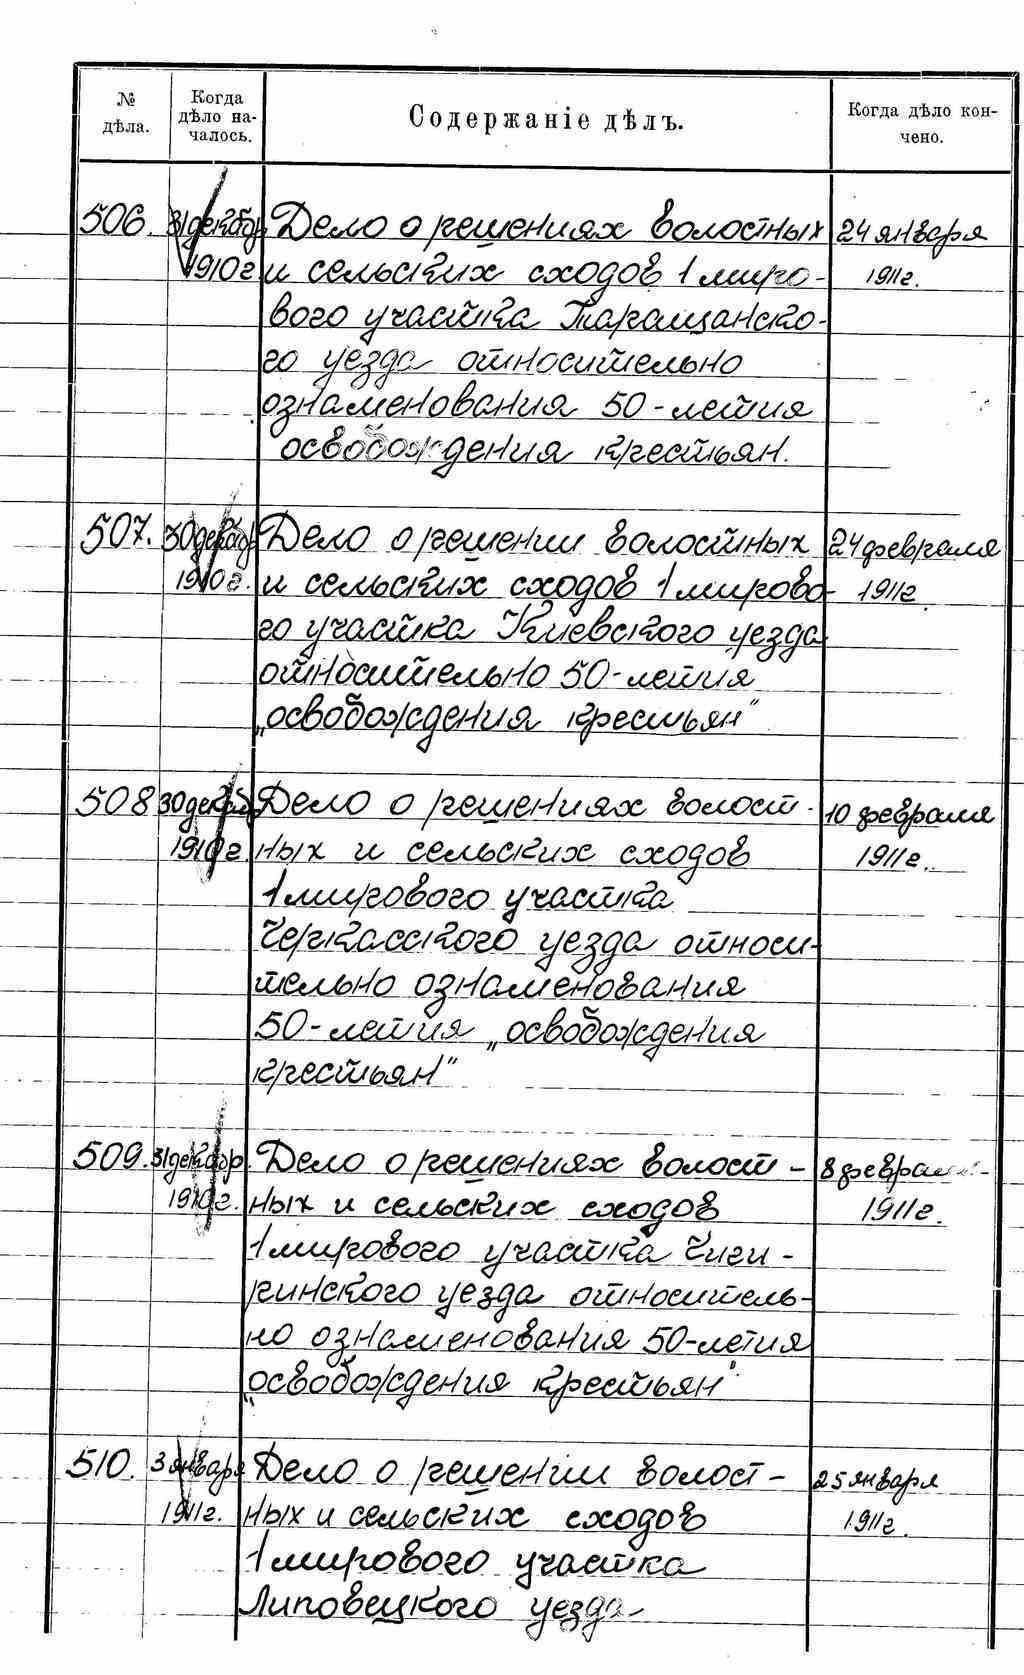 № дѣла.
Когда дѣло на-
чалось.
Содержаніе дѣлъ.
Когда дѣло кон-
чено.
506. 31 декабр. Дело о решениях волостных 24 января
1910 г. и сельских сходов 1 миро- 1911 г.
вого участка Таращанско-
го уезда относительно
ознаменования 50-летия
освобождения крестьян.
507. 30 декабр. Дело о решении волостных 24 февраля
1910 г. и сельских сходов 1 мирово- 1911 г.
го участка Киевского уезда
относительно 50-летия
„освобождения крестьян"
508 30 декаб. Дело о решениях волост- 10 февраля
1910 г. ных и сельских сходов 1911 г.
1 мирового участка
Черкасского уезда относи-
тельно ознаменования
50-летия „освобождения
крестьян"
509. 31 декабр. Дело о решениях волост- 8 февраля
1910 г. ных и сельских сходов 1911 г.
1 мирового участка Чиги-
ринского уезда относитель-
но ознаменования 50-летия
„освобождения крестьян"
510. 3 января Дело о решении волост- 25 января
1911 г. ных и сельских сходов 1911 г.
1 мирового участка
Липовецкого уезда